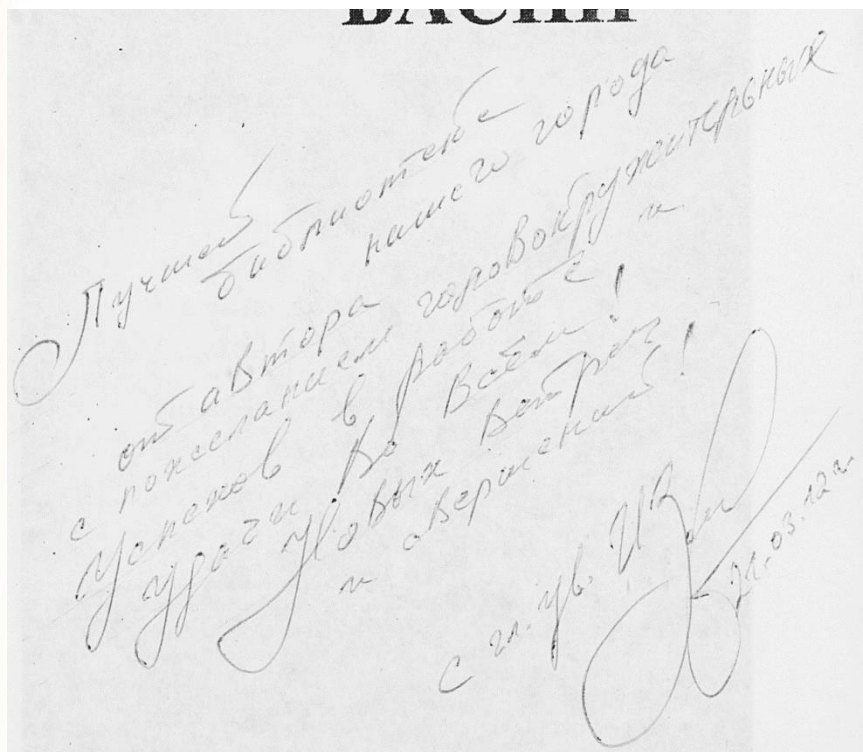 БАСНИ
Лучшей
библиотеке
нашего города
от автора
с пожеланием головокружительных
успехов в работе и
удачи во всём!
Новых встреч
и свершений!
с гл. ув.
21.03.12 г.